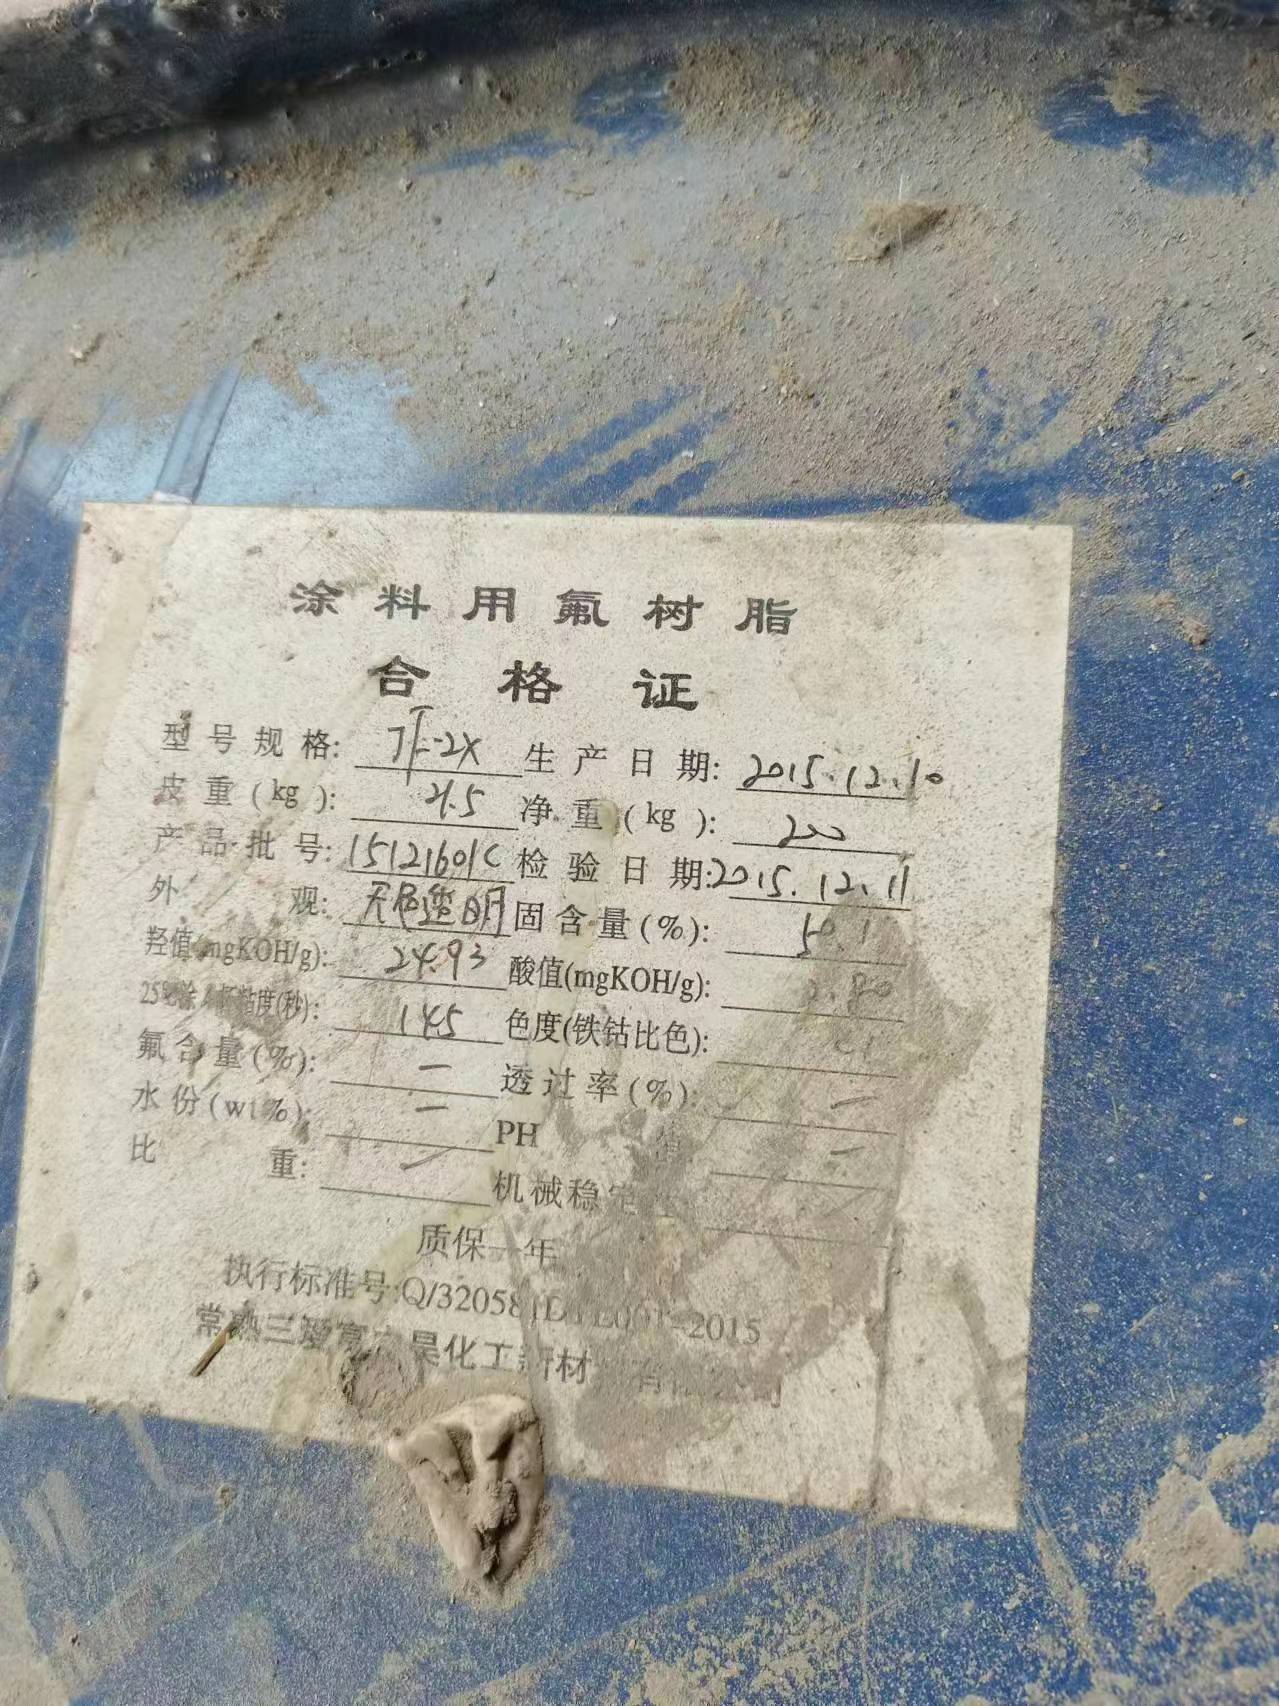 涂料用氟树脂
合格证
型号规格: JF-2X 生产日期: 2015.12.10
皮重(kg): 21.5 净重(kg): 200
产品批号: 15121601C 检验日期: 2015.12.11
外观: 无色透明 固含量(%): 50.1
羟值(mgKOH/g): 24.93 酸值(mgKOH/g): 2.80
25℃涂 杯粘度(秒): 145 色度(铁钴比色):
氟含量(%): — 透过率(%): —
水份(wt%): — PH 值 —
比重: — 机械稳定
质保一年
执行标准号:Q/320581 -2015
常熟三爱富 昊化工新材 有限公司